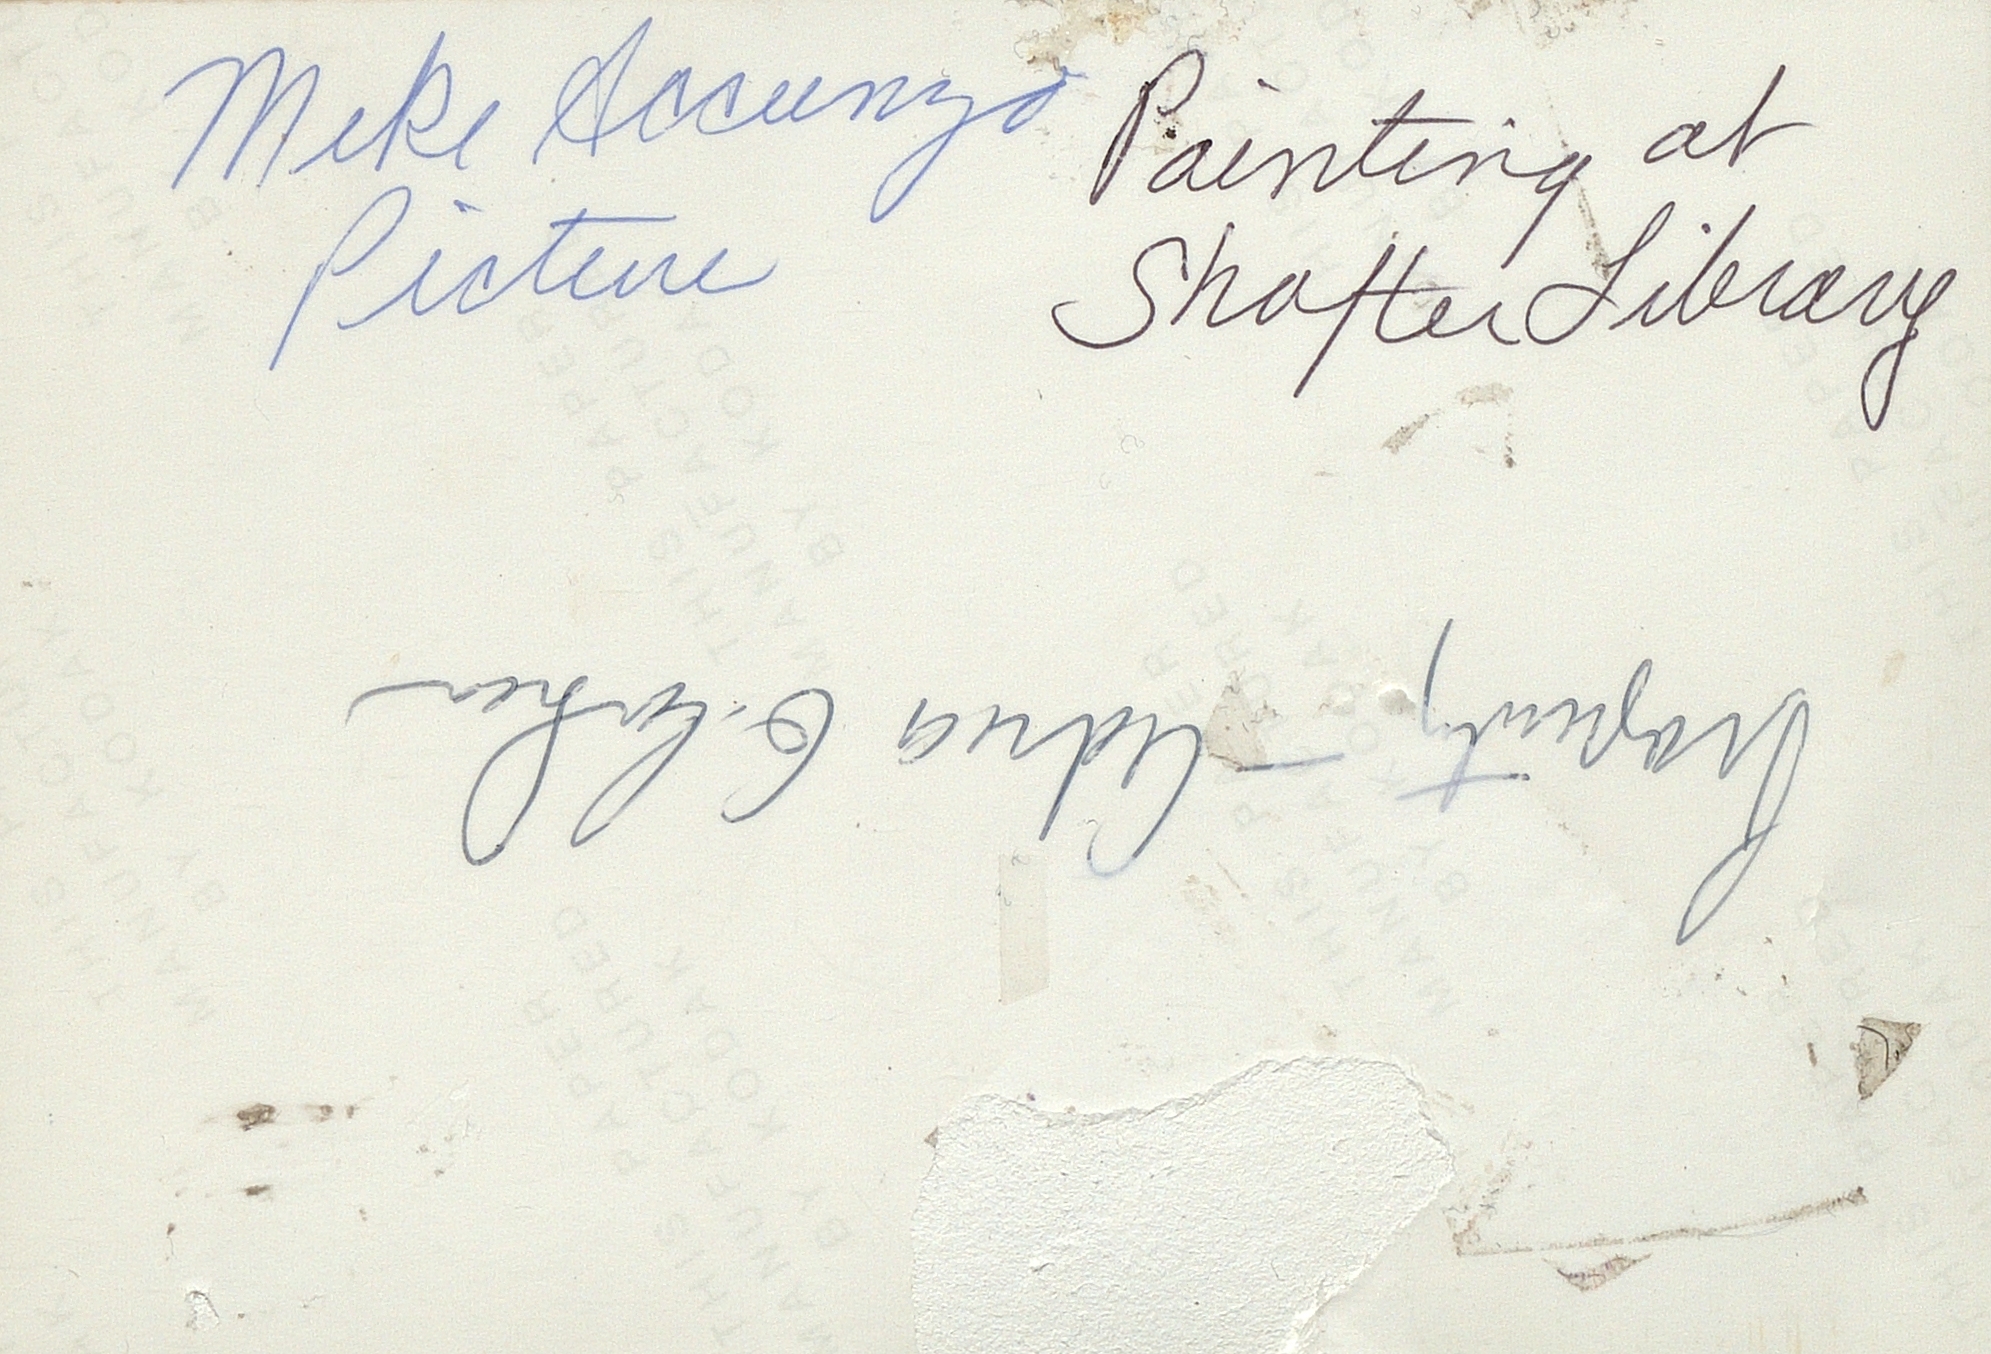 Mike Accunzo
Picture
Painting at
Shafter Library
Property - Edna E.
THIS PAPER
MANUFACTURED
BY KODAK